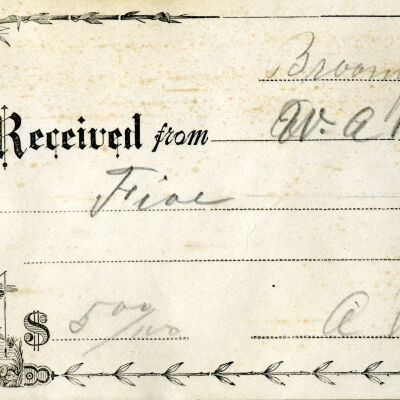 Received from W. A
Five
$ 5 00/100 A